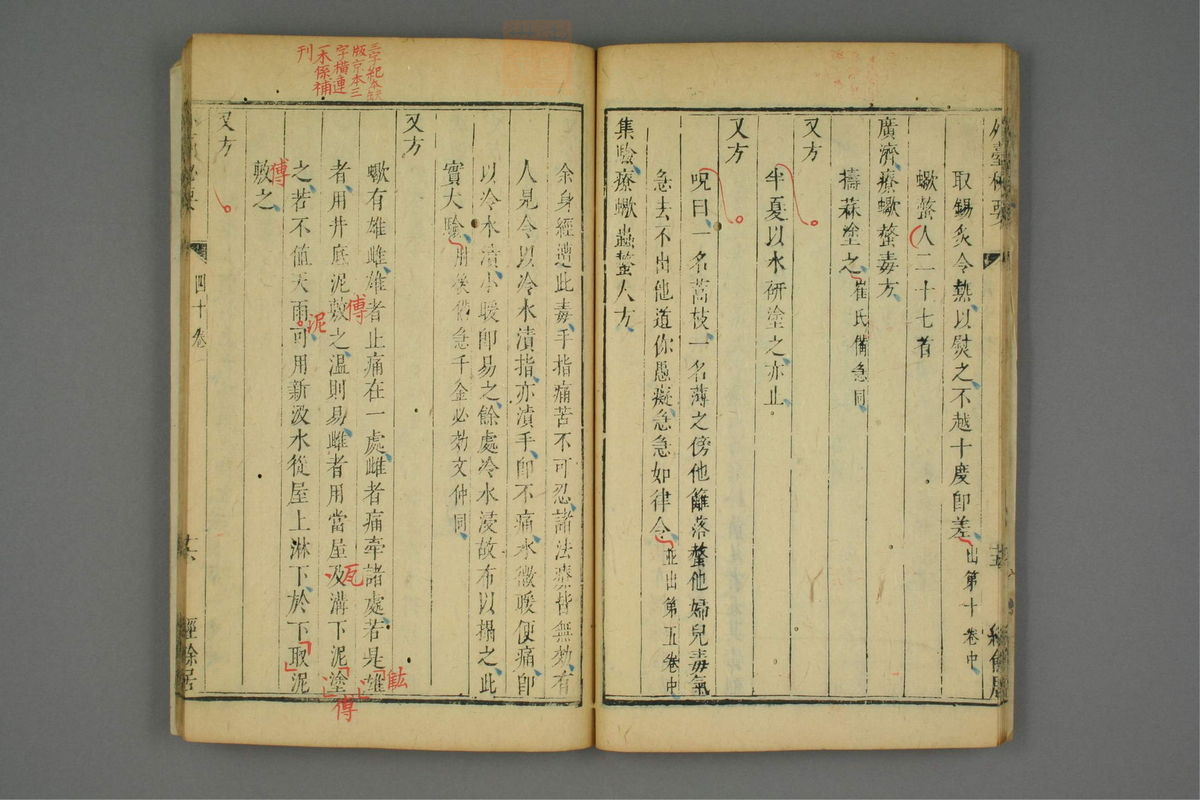 取錫炙令熱以熨之不越十度即差出第十卷中
蠍螫人二十七首
廣濟療蠍螫毒方
擣蒜塗之崔氏備急同
又方
半夏以水研塗之亦止
又方
呪曰一名蒿枝一名薄之傍他籬落螫他婦兒毒氣
急去不出他道你愚癡急急如律令並出第五卷中
集驗療蠍蟲螫人方
余身經遭此毒手指痛苦不可忍諸法療皆無効有
人見令以冷水漬指亦漬手即不痛水微暖便痛即
以冷水漬小暖即易之餘處冷水浸故布以搨之此
實大驗肘後備急千金必効文仲同
又方
蠍有雄雌雄者止痛在一處雌者痛牽諸處若是雄
者用井底泥敷之温則易雌者用當屋及溝下泥塗
之若不值天雨可用新汲水從屋上淋下於下取泥
敷之
又方
四十卷
經餘居
版京本三
字橫連
一本係補
刊
傅
瓦
傅
泥
傅